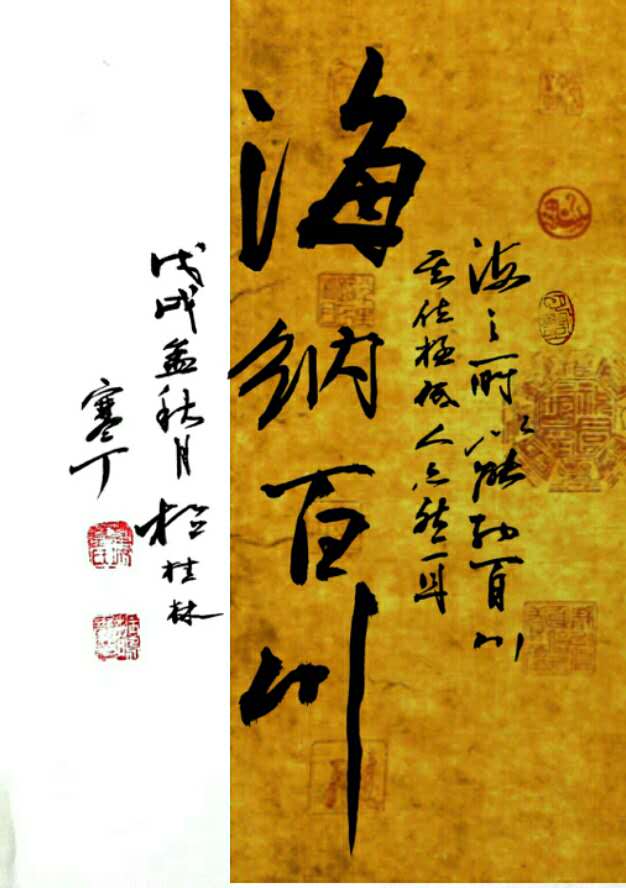 海之所以能纳百川
其位极低人亦然耳
海纳百川
戊戌孟秋月於桂林
寒丁